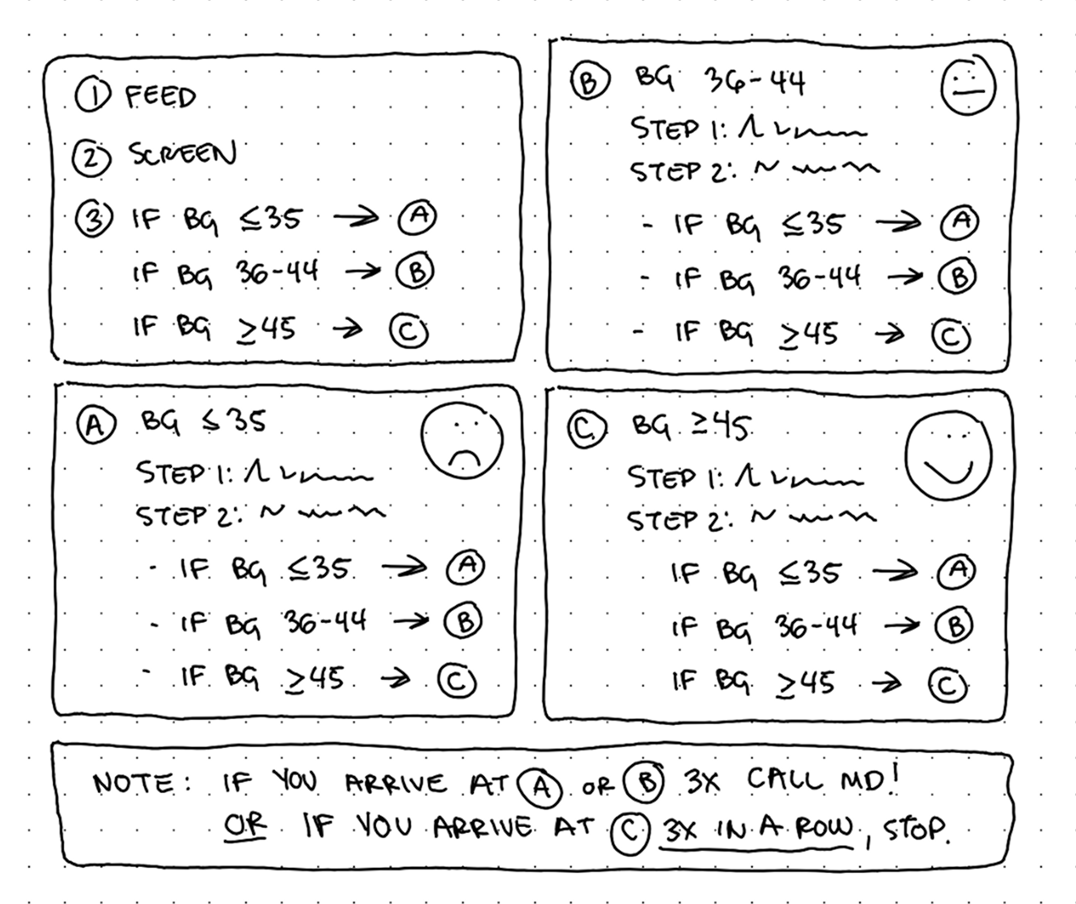 ① FEED
② SCREEN
③ IF BG ≤35 → Ⓐ
IF BG 36-44 → Ⓑ
IF BG ≥45 → Ⓒ
Ⓑ BG 36-44
STEP 1:
STEP 2:
- IF BG ≤35 → Ⓐ
- IF BG 36-44 → Ⓑ
- IF BG ≥45 → Ⓒ
Ⓐ BG ≤35
STEP 1:
STEP 2:
- IF BG ≤35 → Ⓐ
- IF BG 36-44 → Ⓑ
- IF BG ≥45 → Ⓒ
Ⓒ BG ≥45
STEP 1:
STEP 2:
IF BG ≤35 → Ⓐ
IF BG 36-44 → Ⓑ
IF BG ≥45 → Ⓒ
NOTE: IF YOU ARRIVE AT Ⓐ OR Ⓑ 3X CALL MD!
OR IF YOU ARRIVE AT Ⓒ 3X IN A ROW, STOP.